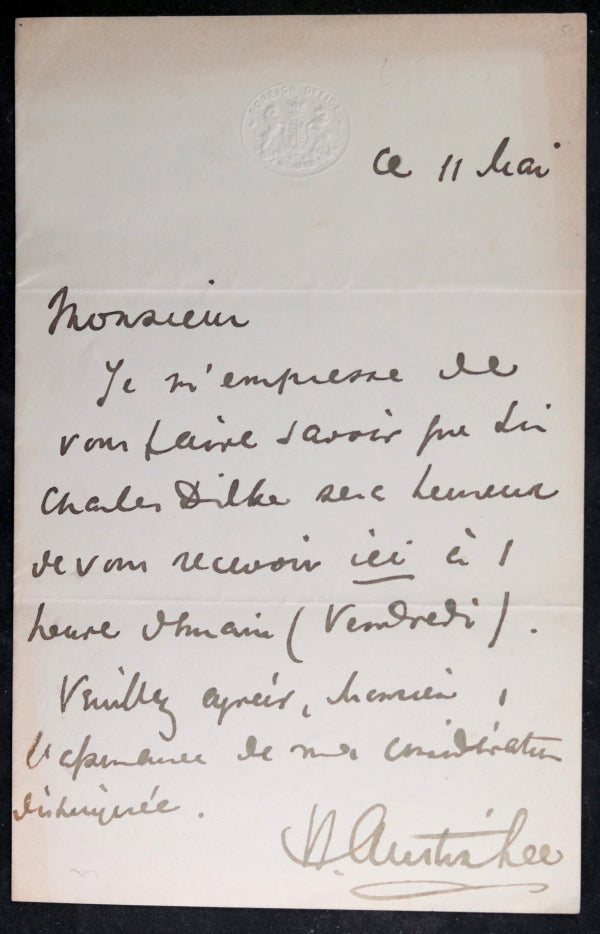 FOREIGN OFFICE
ce 11 Mai
Monsieur
Je m'empresse de
vous faire savoir que Sir
Charles Dilke sera heureux
de vous recevoir ici à 1
heure demain (Vendredi).
Veuillez agréer, Monsieur,
l'assurance de ma considération
distinguée.
H. Austin Lee